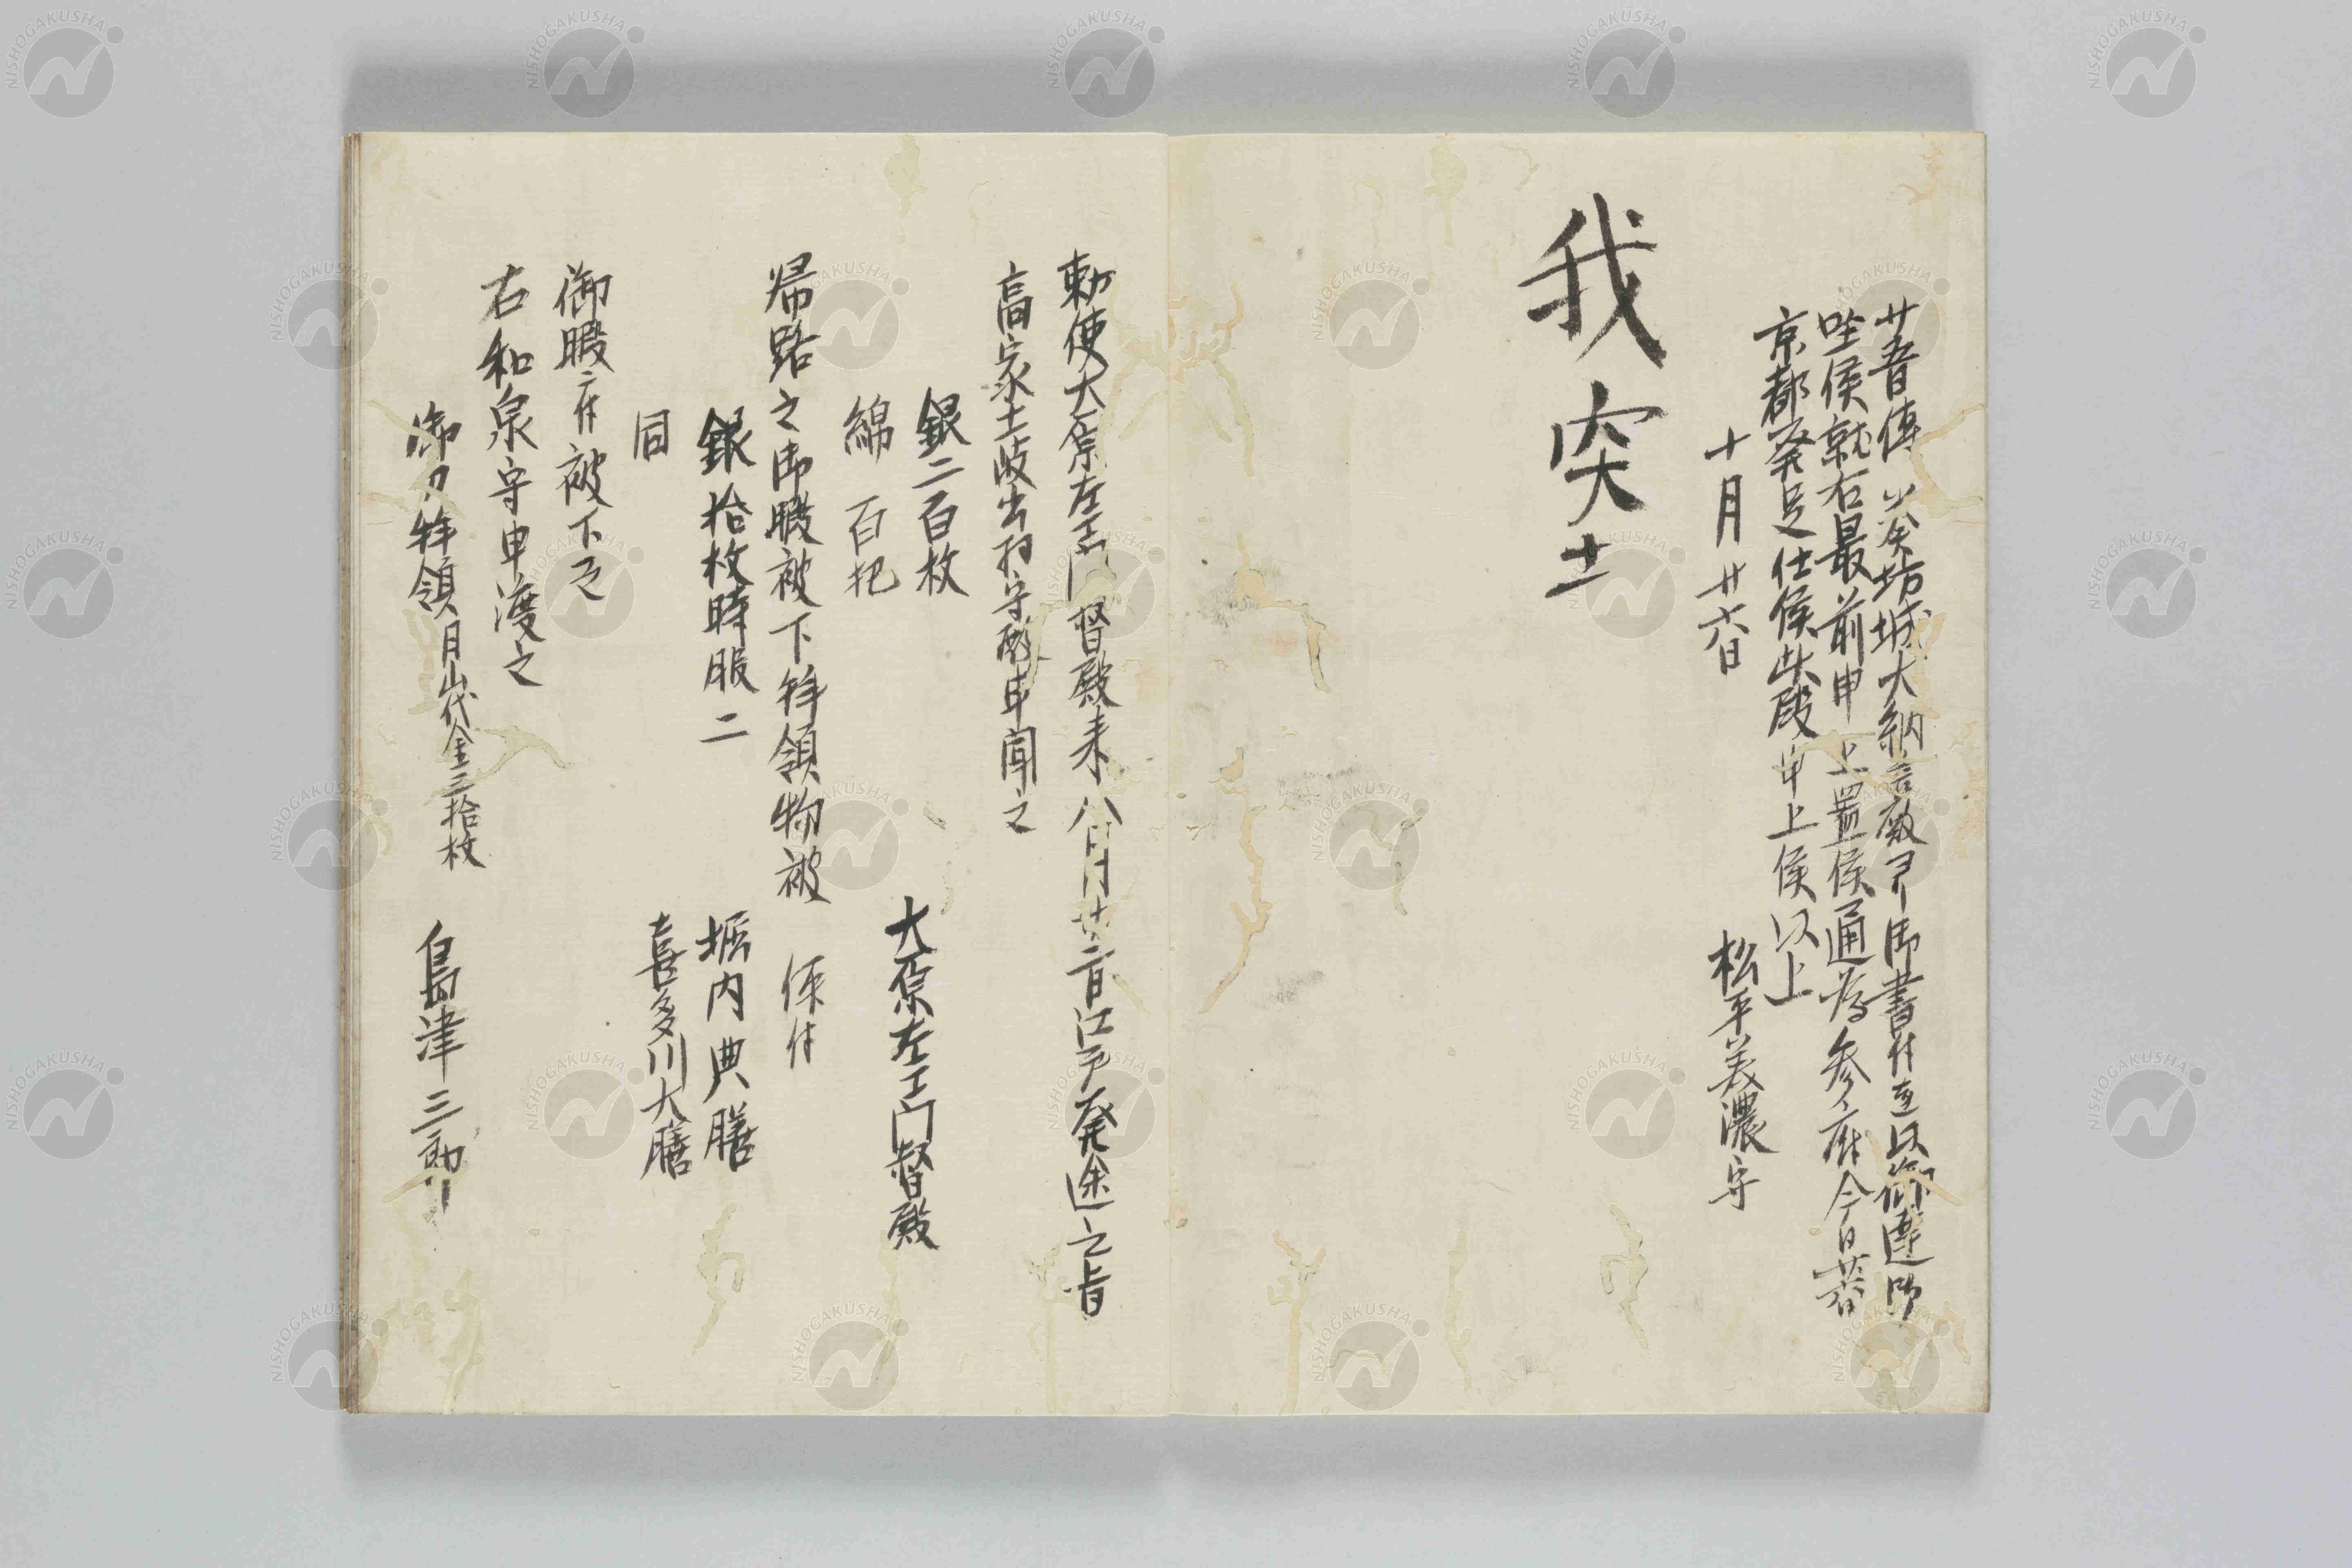 廿五日傳 癸坊城大納言殿ヨリ御書付を以御達御
坐候就右最前申上置候通為参府今日廿六日
京都発足仕候此段申上候以上
十月廿六日
松平美濃守
我突 廿一
勅使大原左衛門督殿来八月廿二日江戸発途之旨
高家土岐出羽守殿申聞之
銀二百枚
綿 百把
大原左衛門督殿
帰路之御暇被下拝領物被 仰付
銀拾枚時服二
堀内典膳
同
喜多川大膳
御暇ニ付被下之
右和泉守申渡之
御刀拝領月山代金三拾枚
島津三郎
NISHOGAKUSHA